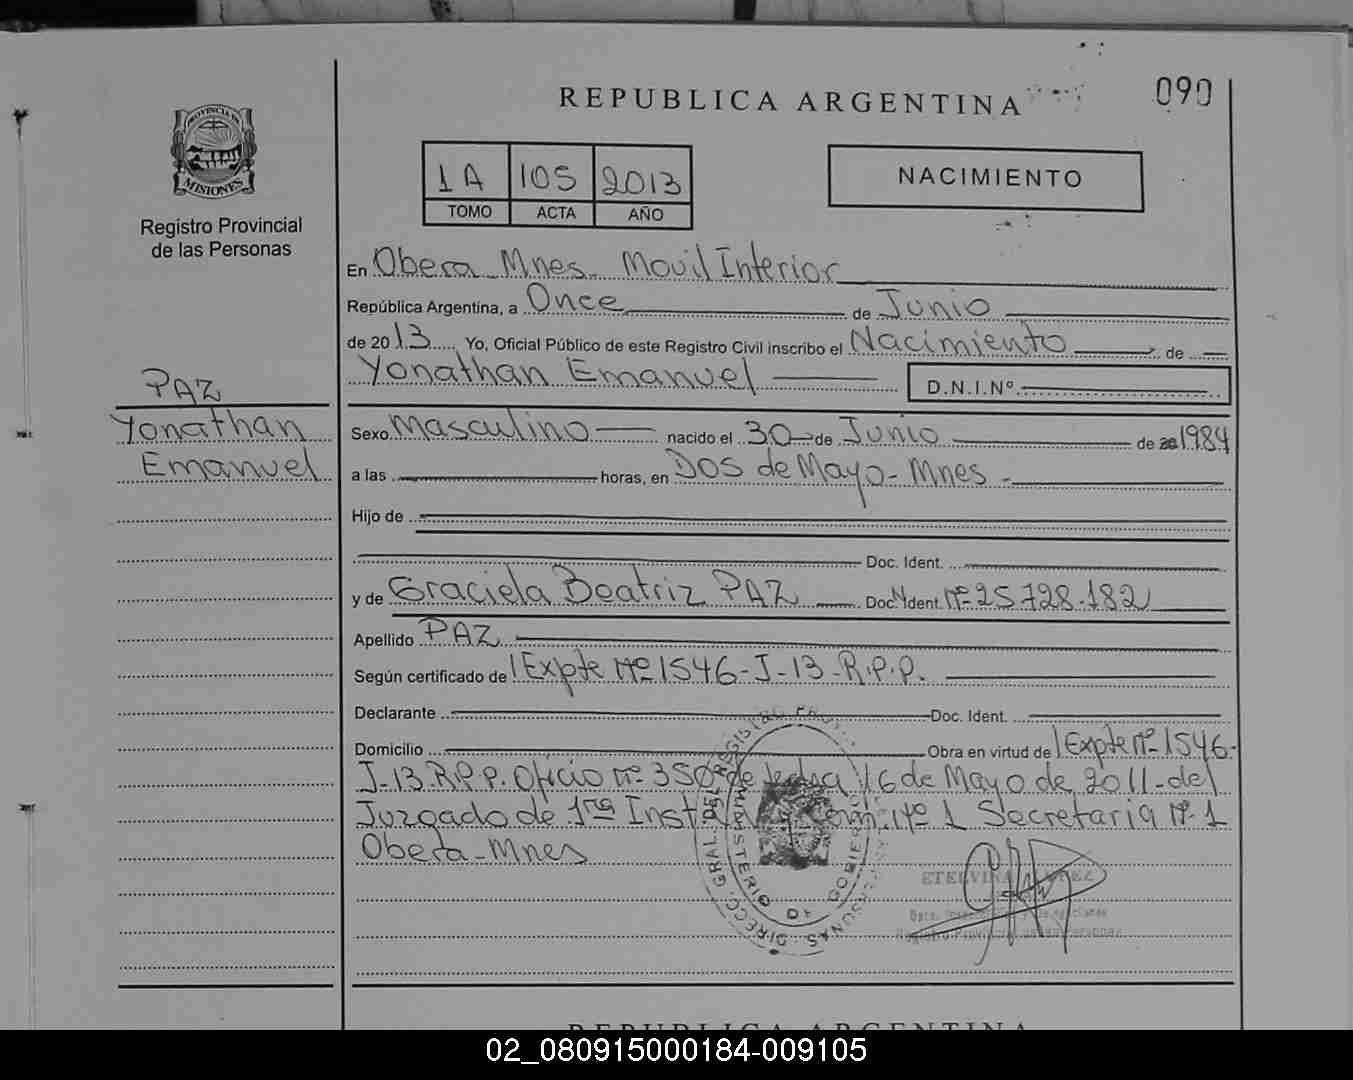 090
REPUBLICA ARGENTINA
PROVINCIA DE
MISIONES
Registro Provincial
de las Personas
1A 105 2013
TOMO ACTA AÑO
NACIMIENTO
En Obera Mnes. Movil Interior
República Argentina, a Once de Junio
de 2013 Yo, Oficial Público de este Registro Civil inscribo el Nacimiento de
Yonathan Emanuel D.N.I.Nº
PAZ
Yonathan
Emanuel
Sexo Masculino nacido el 30 de Junio de 20 1984
a las horas, en Dos de Mayo - Mnes -
Hijo de
Doc. Ident.
y de Graciela Beatriz PAZ Doc. Ident. Nº 25.728.182
Apellido PAZ
Según certificado de Expte Nº 1546-J-13-R.P.P.
Declarante Doc. Ident.
Domicilio Obra en virtud de Expte nº 1546-
J-13.R.P.P. Oficio nº 350 de fecha 16 de Mayo de 2011 - del
Juzgado de 1ra Inst Nº 1 Secretaria Nº 1
Obera - Mnes
DIRECC. GRAL. DEL REGISTRO
MINISTERIO DE GOBIERNO
ETELVINA
Registro Provincial de las Personas
REPUBLICA ARGENTINA
02_080915000184-009105